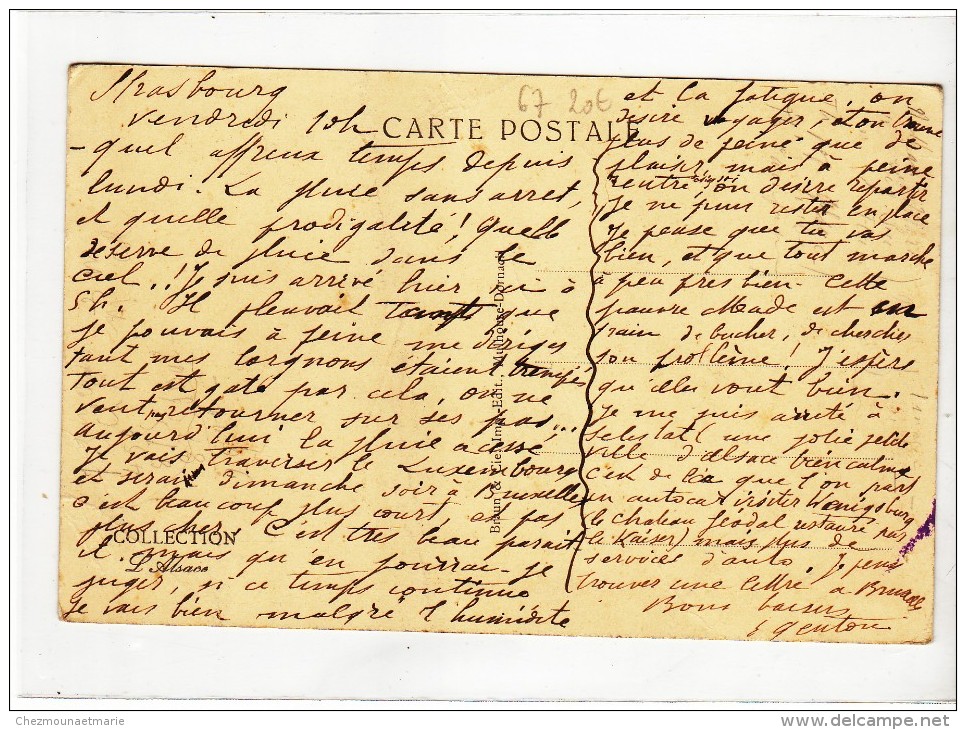 Strasbourg
Vendredi 10h
67 20€
CARTE POSTALE
- quel affreux temps depuis
lundi. La pluie sans arrêt,
et quelle prodigalité! Quelle
réserve de pluie dans le
ciel!! Je suis arrivé hier ici à
5h. Il pleuvait tant que
je pouvais à peine me diriger
tant mes lorgnons étaient trempés
Tout est gaté par cela, on ne
veut retourner sur ses pas...
aujourd'hui la pluie a cessé
Je vais traverser le Luxembourg
et serai dimanche soir à Bruxelles
c'est beaucoup plus court et pas
plus cher. C'est très beau parait
il mais qu'en pourrai-je
juger, si ce temps continue
Je vais bien malgré l'humidité
COLLECTION
L'Alsace
Braun & Cie, Imp.-Edit., Mulhouse-Dornach
et la fatigue, on
désire voyager et on trouve
plus de peine que de
plaisir, mais à peine
rentré, on désire repartir
Je ne puis rester en place
Je pense que tu vas
bien, et que tout marche
à peu près bien - Cette
pauvre Meade est en
train de bucher, de chercher
son problème! J'espère
qu'elles vont bien.
Je me suis arrêté à
Selestat (une jolie petite
ville d'alsace bien calme
C'est de là que l'on part
en autocar visiter Kœnigsburg
le chateau féodal restauré par
le Kaiser) mais plus de
services d'auto. Je pense
trouver une lettre à Bruxelles
Bons baisers